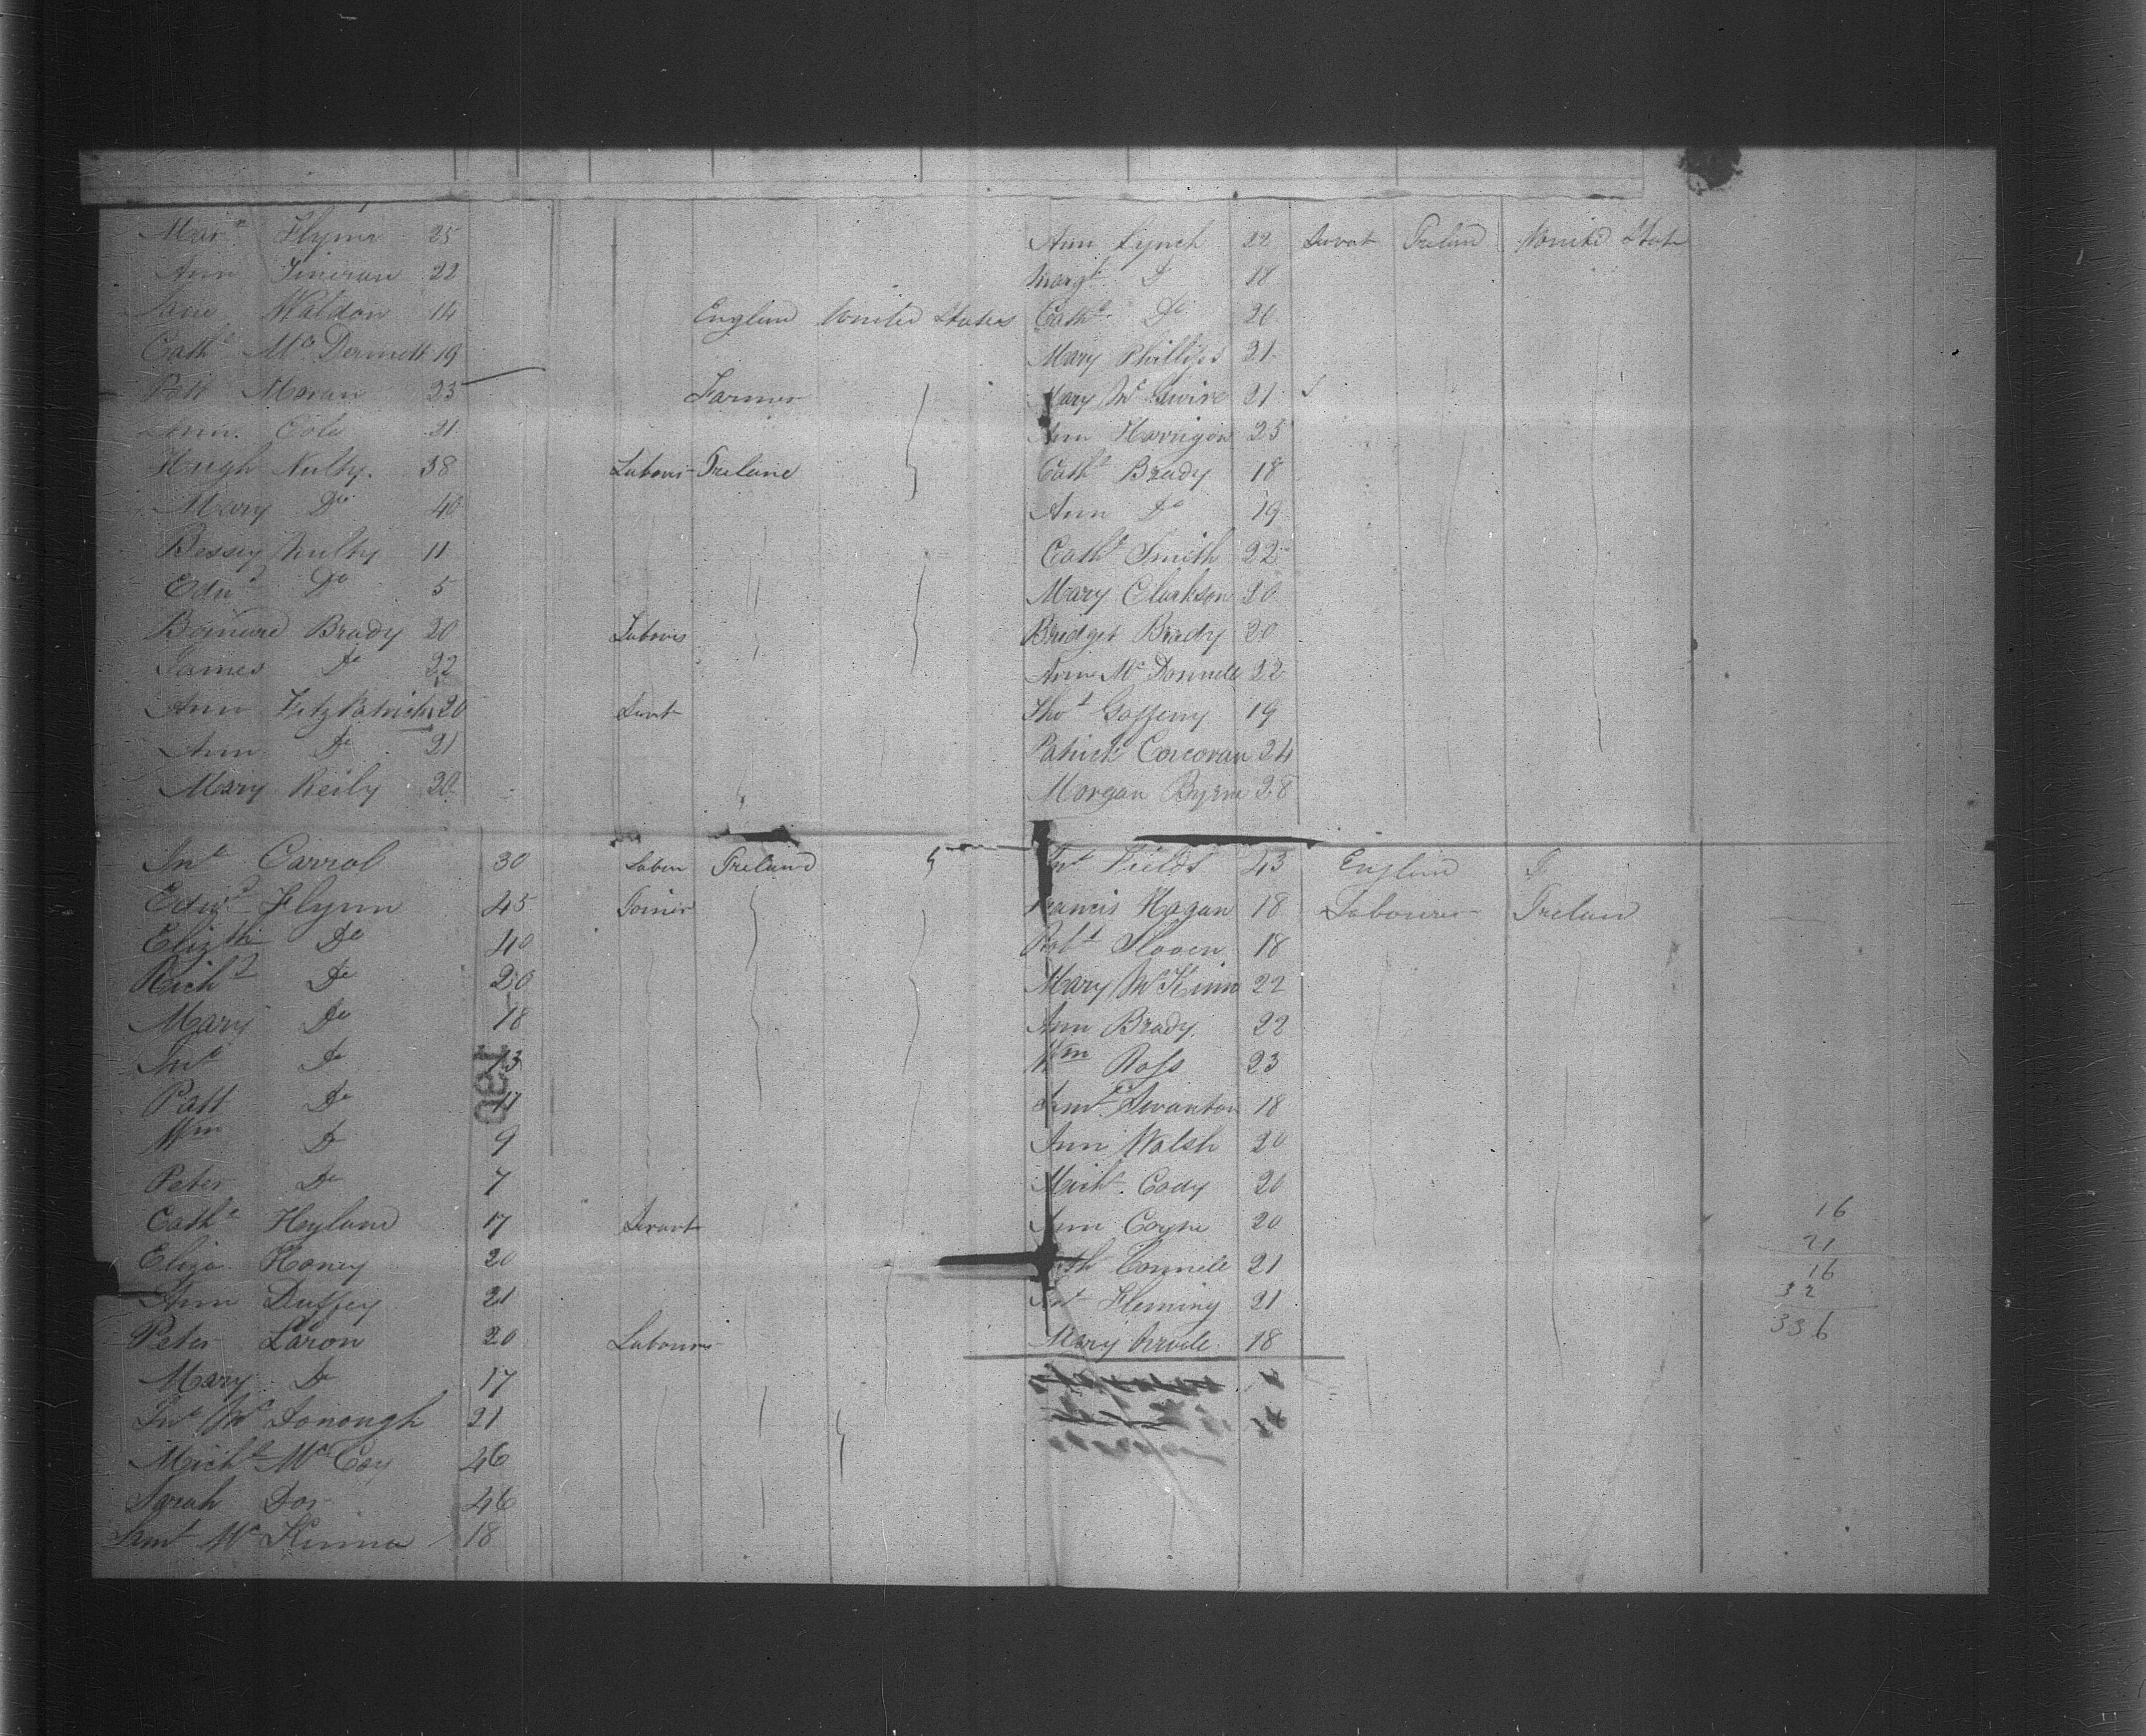 Mar^t Flynn 25
Ann Fineran 22
Jane Waldon 14 England United States
Cath^e Mc Dermott 19
Patt Moran 25 Farmer
Ann Cole 21
Hugh Nulty. 38 Labour Ireland
Mary Do 40
Bessey Nulty 11
Edw^d Do 5
Bernard Brady 20 Labour
James Do 22
Ann FitzPatrick 20 Servt
Ann Do 21
Mary Reily 20
Jn^o Carrol 30 Labou Ireland
Edw^d Flynn 45 Joiner
Elizth Do 40
Rich^d Do 20
Mary Do 18
Jn^o Do 13
Patt Do 11
Wm Do 9
Peter Do 7
Cath^e Hyland 17 Servant
Eliza Honey 20
Ann Duffey 21
Peter Laron 20 Labourer
Mary Do 17
Jn^o Mc Donough 21
Mich^l Mc Coy 46
Sarah Do 46
Saml Mc Kinna 18
130
Ann Lynch 22 Servt Ireland United State
Margt Do 18
Cath^e Do 20
Mary Phillips 21
Mary Mc Guire 21
Ann Harrigan 25
Cath^e Brady 18
Ann Do 19
Cath^e Smith 22
Mary Clarkson 20
Bridget Brady 20
Ann Mc Donnell 22
Tho^s Gaffeny 19
Patrick Corcoran 24
Morgan Byrne 28
Jn^o Fields 43 England Do
Francis Hagan 18 Labourer Ireland
Rob^t Slaven 18
Mary McKinn 22
Ann Brady 22
Wm Ross 23
Saml Swanton 18
Ann Walsh 20
Mich^l Cody 20
Ann Coyne 20
Cath Connell 21
Jn^o Fleming 21
Mary 18
16
21
16
32
336